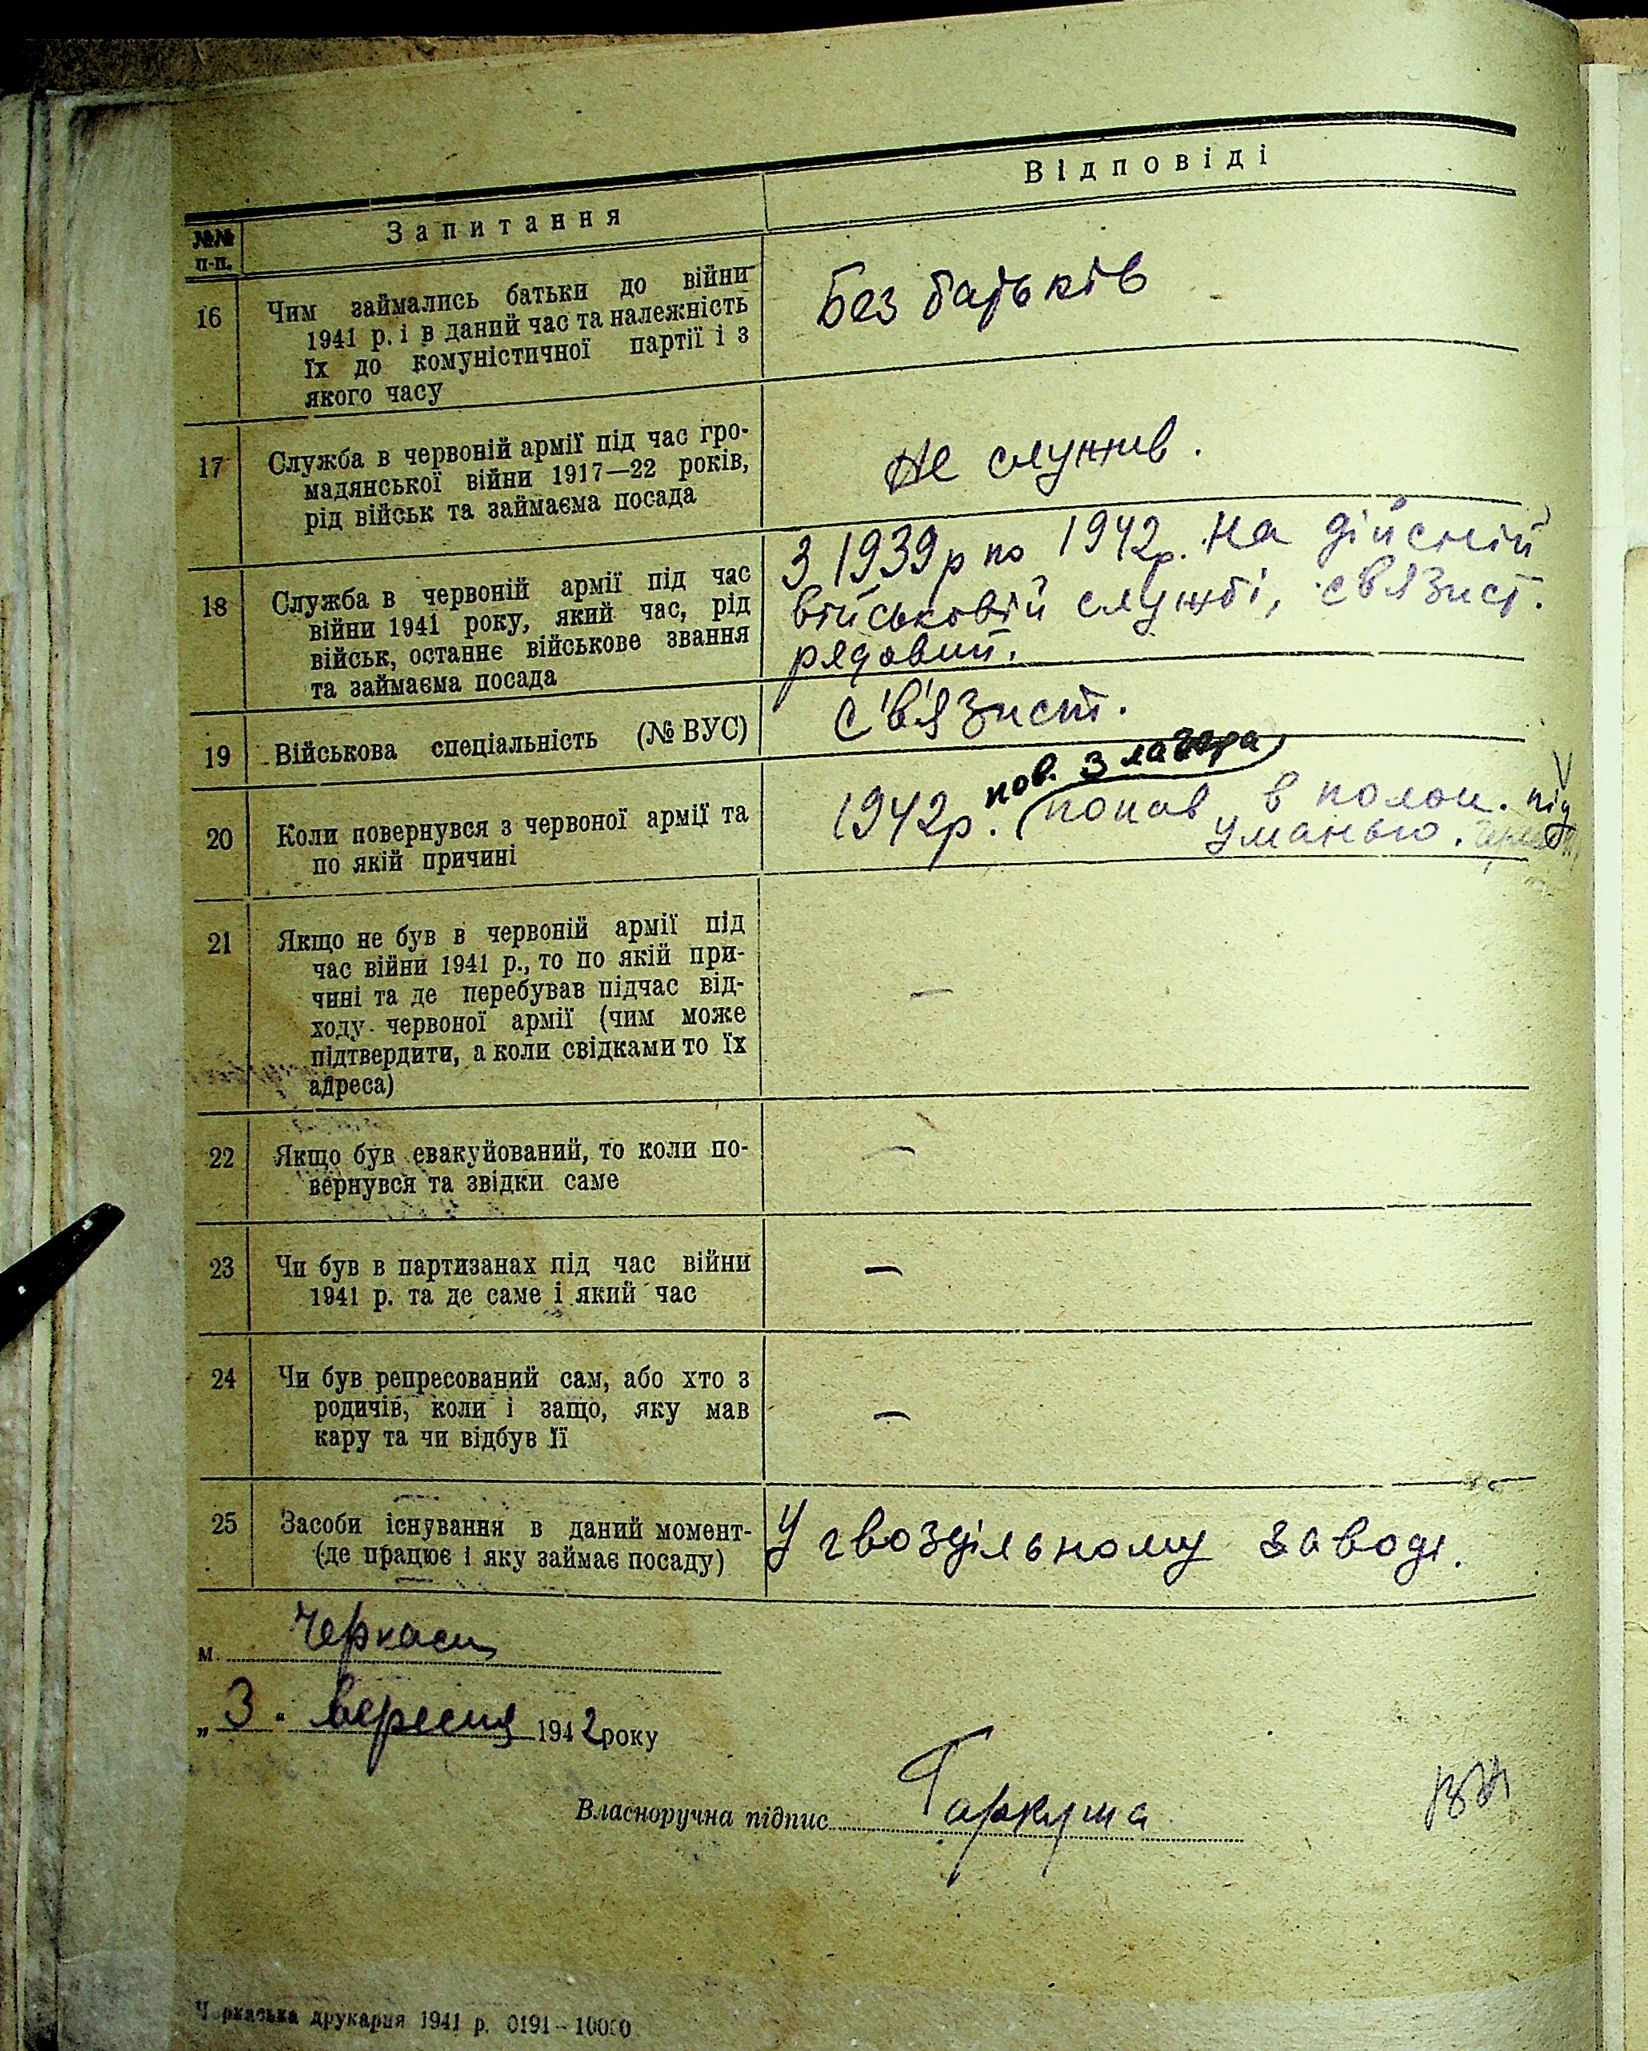 №№ п-п.
Запитання
Відповіді
16
Чим займались батьки до війни
1941 р. і в даний час та належність
їх до комуністичної партії і з
якого часу
Без батьків
17
Служба в червоній армії під час гро-
мадянської війни 1917—22 років,
рід військ та займаєма посада
Не служив.
18
Служба в червоній армії під час
війни 1941 року, який час, рід
військ, останнє військове звання
та займаєма посада
З 1939р по 1942р. На дійсній
військовій службі, свЯзист.
рядовий.
19
Військова спеціальність (№ ВУС)
с'в'язист.
20
Коли повернувся з червоної армії та
по якій причині
пов. з лагера
1942р. (попав в полон. під
уманью.
21
Якщо не був в червоній армії під
час війни 1941 р., то по якій при-
чині та де перебував підчас від-
ходу червоної армії (чим може
підтвердити, а коли свідками то їх
адреса)
—
22
Якщо був евакуйований, то коли по-
вернувся та звідки саме
—
23
Чи був в партизанах під час війни
1941 р. та де саме і який час
—
24
Чи був репресований сам, або хто з
родичів, коли і защо, яку мав
кару та чи відбув її
—
25
Засоби існування в даний момент-
(де працює і яку займає посаду)
У гвоздільному заводі.
м. Черкаси
„3" вересня 1942 року
Власноручна підпис Гаркуша
Черкаська друкарня 1941 р. 0191—10000